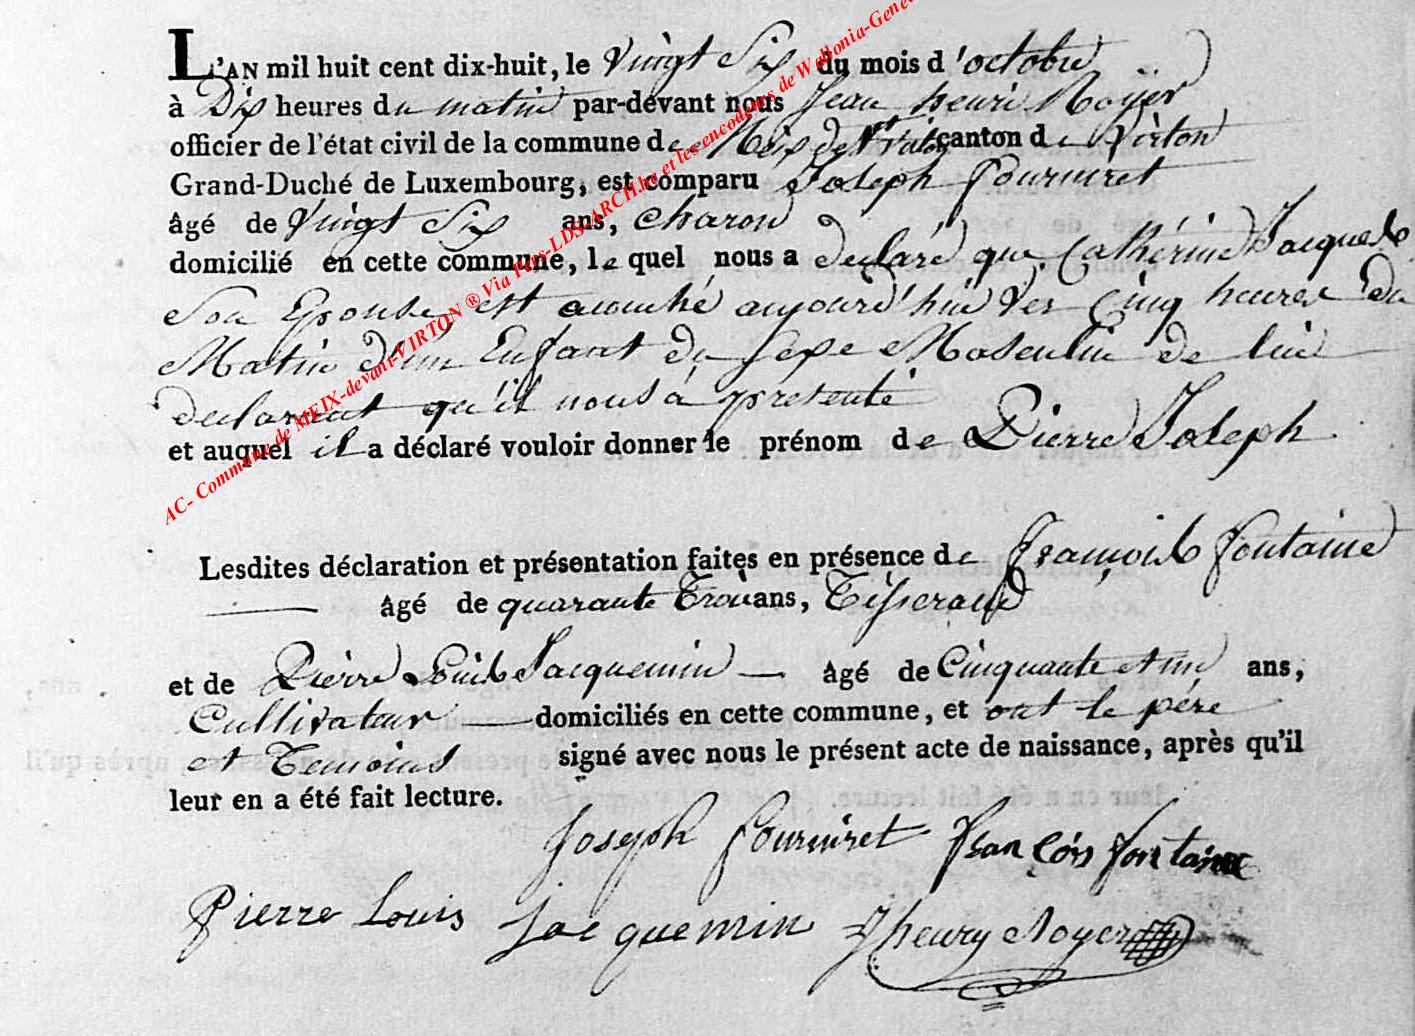 L'AN mil huit cent dix-huit, le vingt Six du mois d'octobre
à Dix heures du matin par-devant nous Jean henri Noyër
officier de l'état civil de la commune de Meix dvt Virton canton de Virton
Grand-Duché de Luxembourg, est comparu Joseph fourniret
âgé de Vingt Six ans, charon
domicilié en cette commune, le quel nous a declaré que Cathérine Jacques
Son Epouse, est acouché aujourd'hui Ver Cinq heures du
Matin d'un Enfant du Sexe Masculin de lui
declarant qu'il nous à presenté
et auquel il a déclaré vouloir donner le prénom de Pierre Joseph
Lesdites déclaration et présentation faites en présence de françois fontaine
âgé de quarante Trois ans, Tisserand
et de Pierre Louis Jacquemin âgé de Cinquante et un ans,
Cultivateur domiciliés en cette commune, et ont le père
et Temoins signé avec nous le présent acte de naissance, après qu'il
leur en a été fait lecture.
Joseph fourniret françois fontaine
Pierre Louis Jacquemin Jhenry Noyer
AC- Commune de MEIX-devant-VIRTON ® Via Pers-LDS-ARCH.be et les encodeurs de Wallonia-Gene